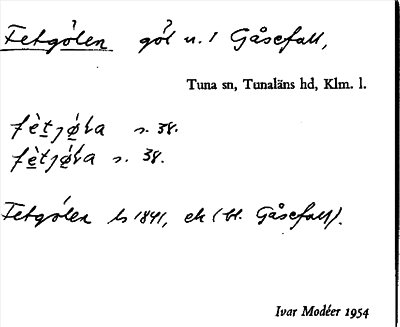 Fetgölen göl n. / Gåsefall,
Tuna sn, Tunaläns hd, Klm. l.
s. 38.
s. 38.
Fetgölen ls 1841, ek (bl. Gåsefall).
Ivar Modéer 1954